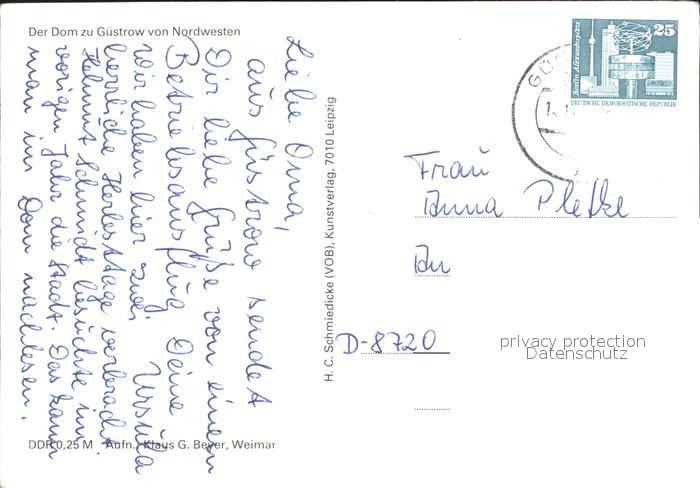 Der Dom zu Güstrow von Nordwesten
Liebe Oma,
aus Güstrow sendet
Dir liebe Grüße von einem
Betriebsausflug Deine
Ursula
Wir haben hier zwei
herrliche Herbsttage verbracht.
Helmut Schmidt besuchte im
vorigen Jahr die Stadt. Das kann
man im Dom nachlesen.
DDR 0,25 M Aufn.: Klaus G. Beyer, Weimar
H. C. Schmiedicke (VOB), Kunstverlag, 7010 Leipzig
Berlin, Alexanderplatz
25
DEUTSCHE DEMOKRATISCHE REPUBLIK
Frau
Anna
D-8720
privacy protection
Datenschutz